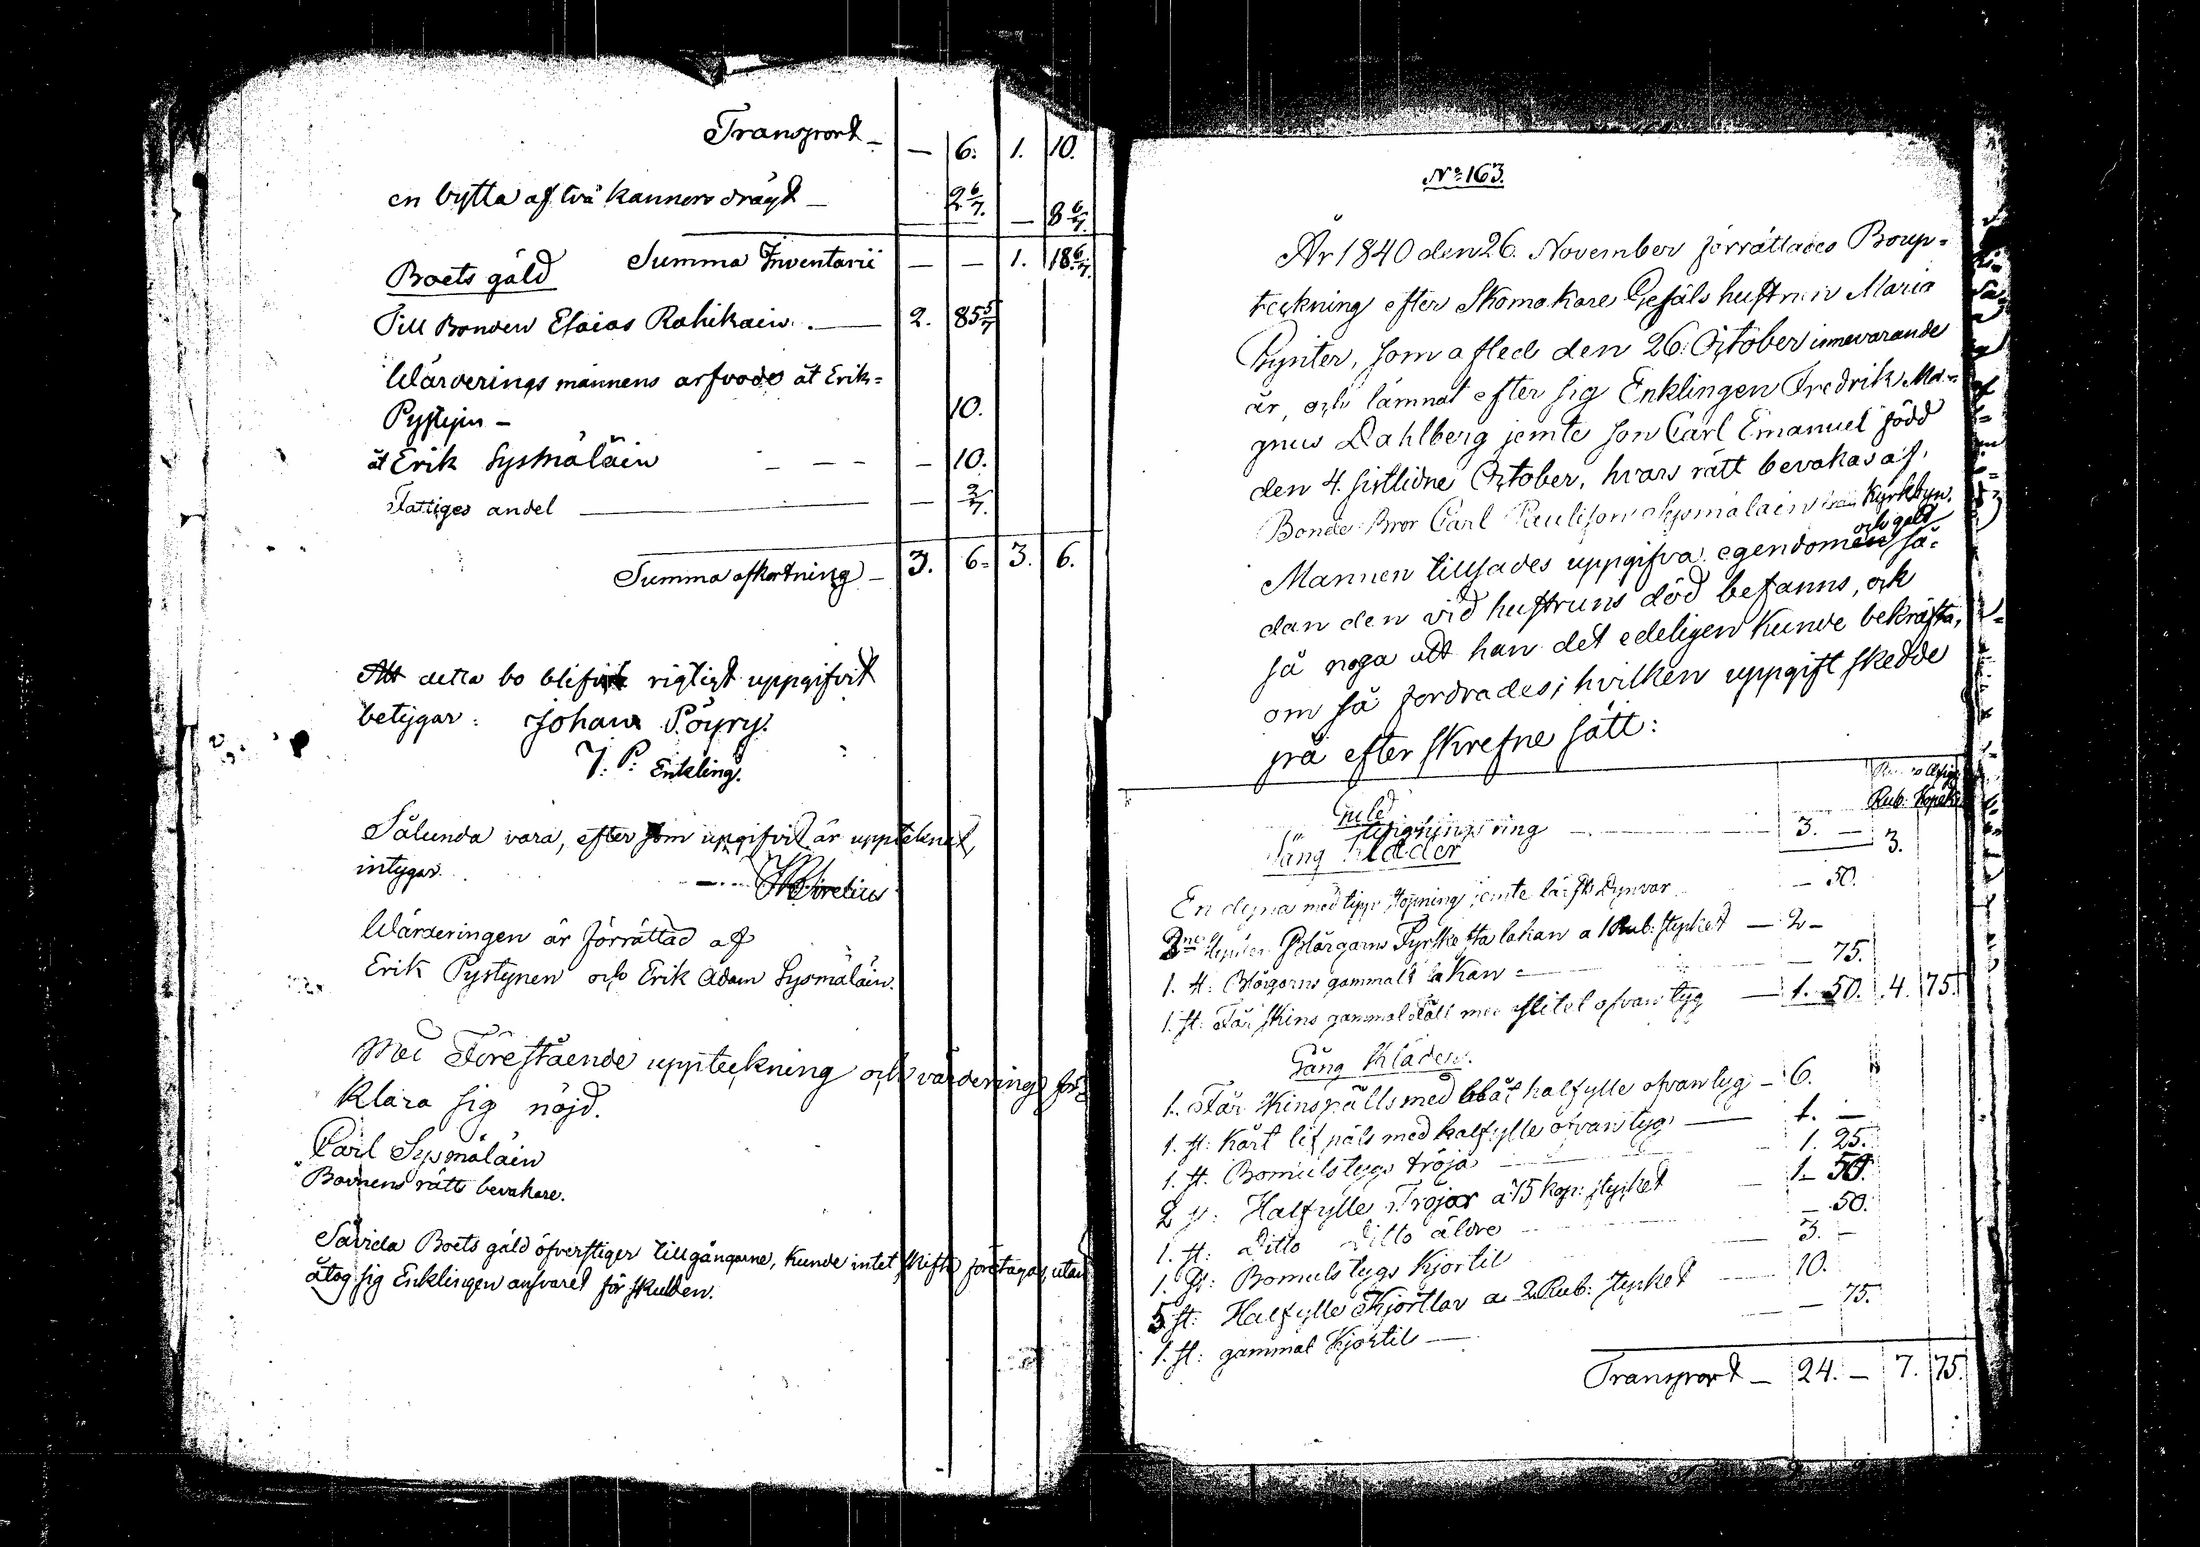 Transport — — 6. 1. 10.
en bytta af två kannors drägt — 2 6/7. — 8 6/7.
Summa Inventarii — — 1. 18 6/7.
Boets gäld
Till Bonden Esaias Rahikain. — 2. 85 5/7
Wärderings männens arfvode åt Erik=
Pystynen — 10.
åt Erik Sysmäläin — — — — 10.
Fattiges andel — — 2/7.
Summa afkortning — 3. 6. 3. 6.
Att detta bo blifvit rigtigt uppgifvit
betygar: Johan Pöyry.
J. P. Enkling.
Sålunda vara, efter som uppgifvit är uppteknat,
intygar. Sirelius
Wärderingen är förrättad af
Erik Pystynen och Erik Adam Sysmäläin.
Med Förestående uppteckning och värdering för=
klara sig nöjd.
Carl Sysmäläin
Barnens rätts bevakare.
Såvida Boets gäld öfverstiger tillgångarne, kunde intet skifte företagas, utan
åtog sig Enklingen ansvaret för skulden.
No 163.
År 1840 den 26. November förrättades Boup=
teckning efter Skomakare Gesäls hustrun Maria
Pynter, som afled den 26. October innevarande
år, och lämnat efter sig Enklingen Fredrik Ma=
gnus Dahlberg jemte son Carl Emanuel född
den 4. sistlidne October, hvars rätt bevakas af.
Bonde Bror Carl Paulison Sysmäläin från Kyrkbyn.
och gäld
Mannen tillsades uppgifva egendomen så=
dan den vid hustruns död befanns, och
så noga att han det edeligen kunde bekräfta,
om så fordrades; hvilken uppgift skedde
på efter skrefne sätt:
Rub. Kopek
Guld
ring — 3. — 3.
Säng Kläder
En dyna med stopning jemte dynvar — 50.
2ne Blårgarns lakan a 1 Rub: stycket — 2 —
1. st: Blårgarns gammalt lakan — — 75.
1. st: Får skins gammal fäll med slitet ofvantyg — 1. 50. 4. 75.
Gång Kläder.
1. Får skins päls med blåt halfylle ofvantyg — 6.
1. st: kårt lif päls med halfylle ofvantyg — 1. —
1. st. Bomulstygs tröja — 1. 25.
2 st: Halfylle Tröjor a 75 kop: stycket — 1. 50.
1. st: Ditto Ditto äldre — 50.
1. st: Bomulstygs Kjortil 3. —
5 st: Halfylle Kjortlar a 2 Rub: stycket — 10.
1. st: gammal Kjortil — — 75.
Transport — 24. — 7. 75.